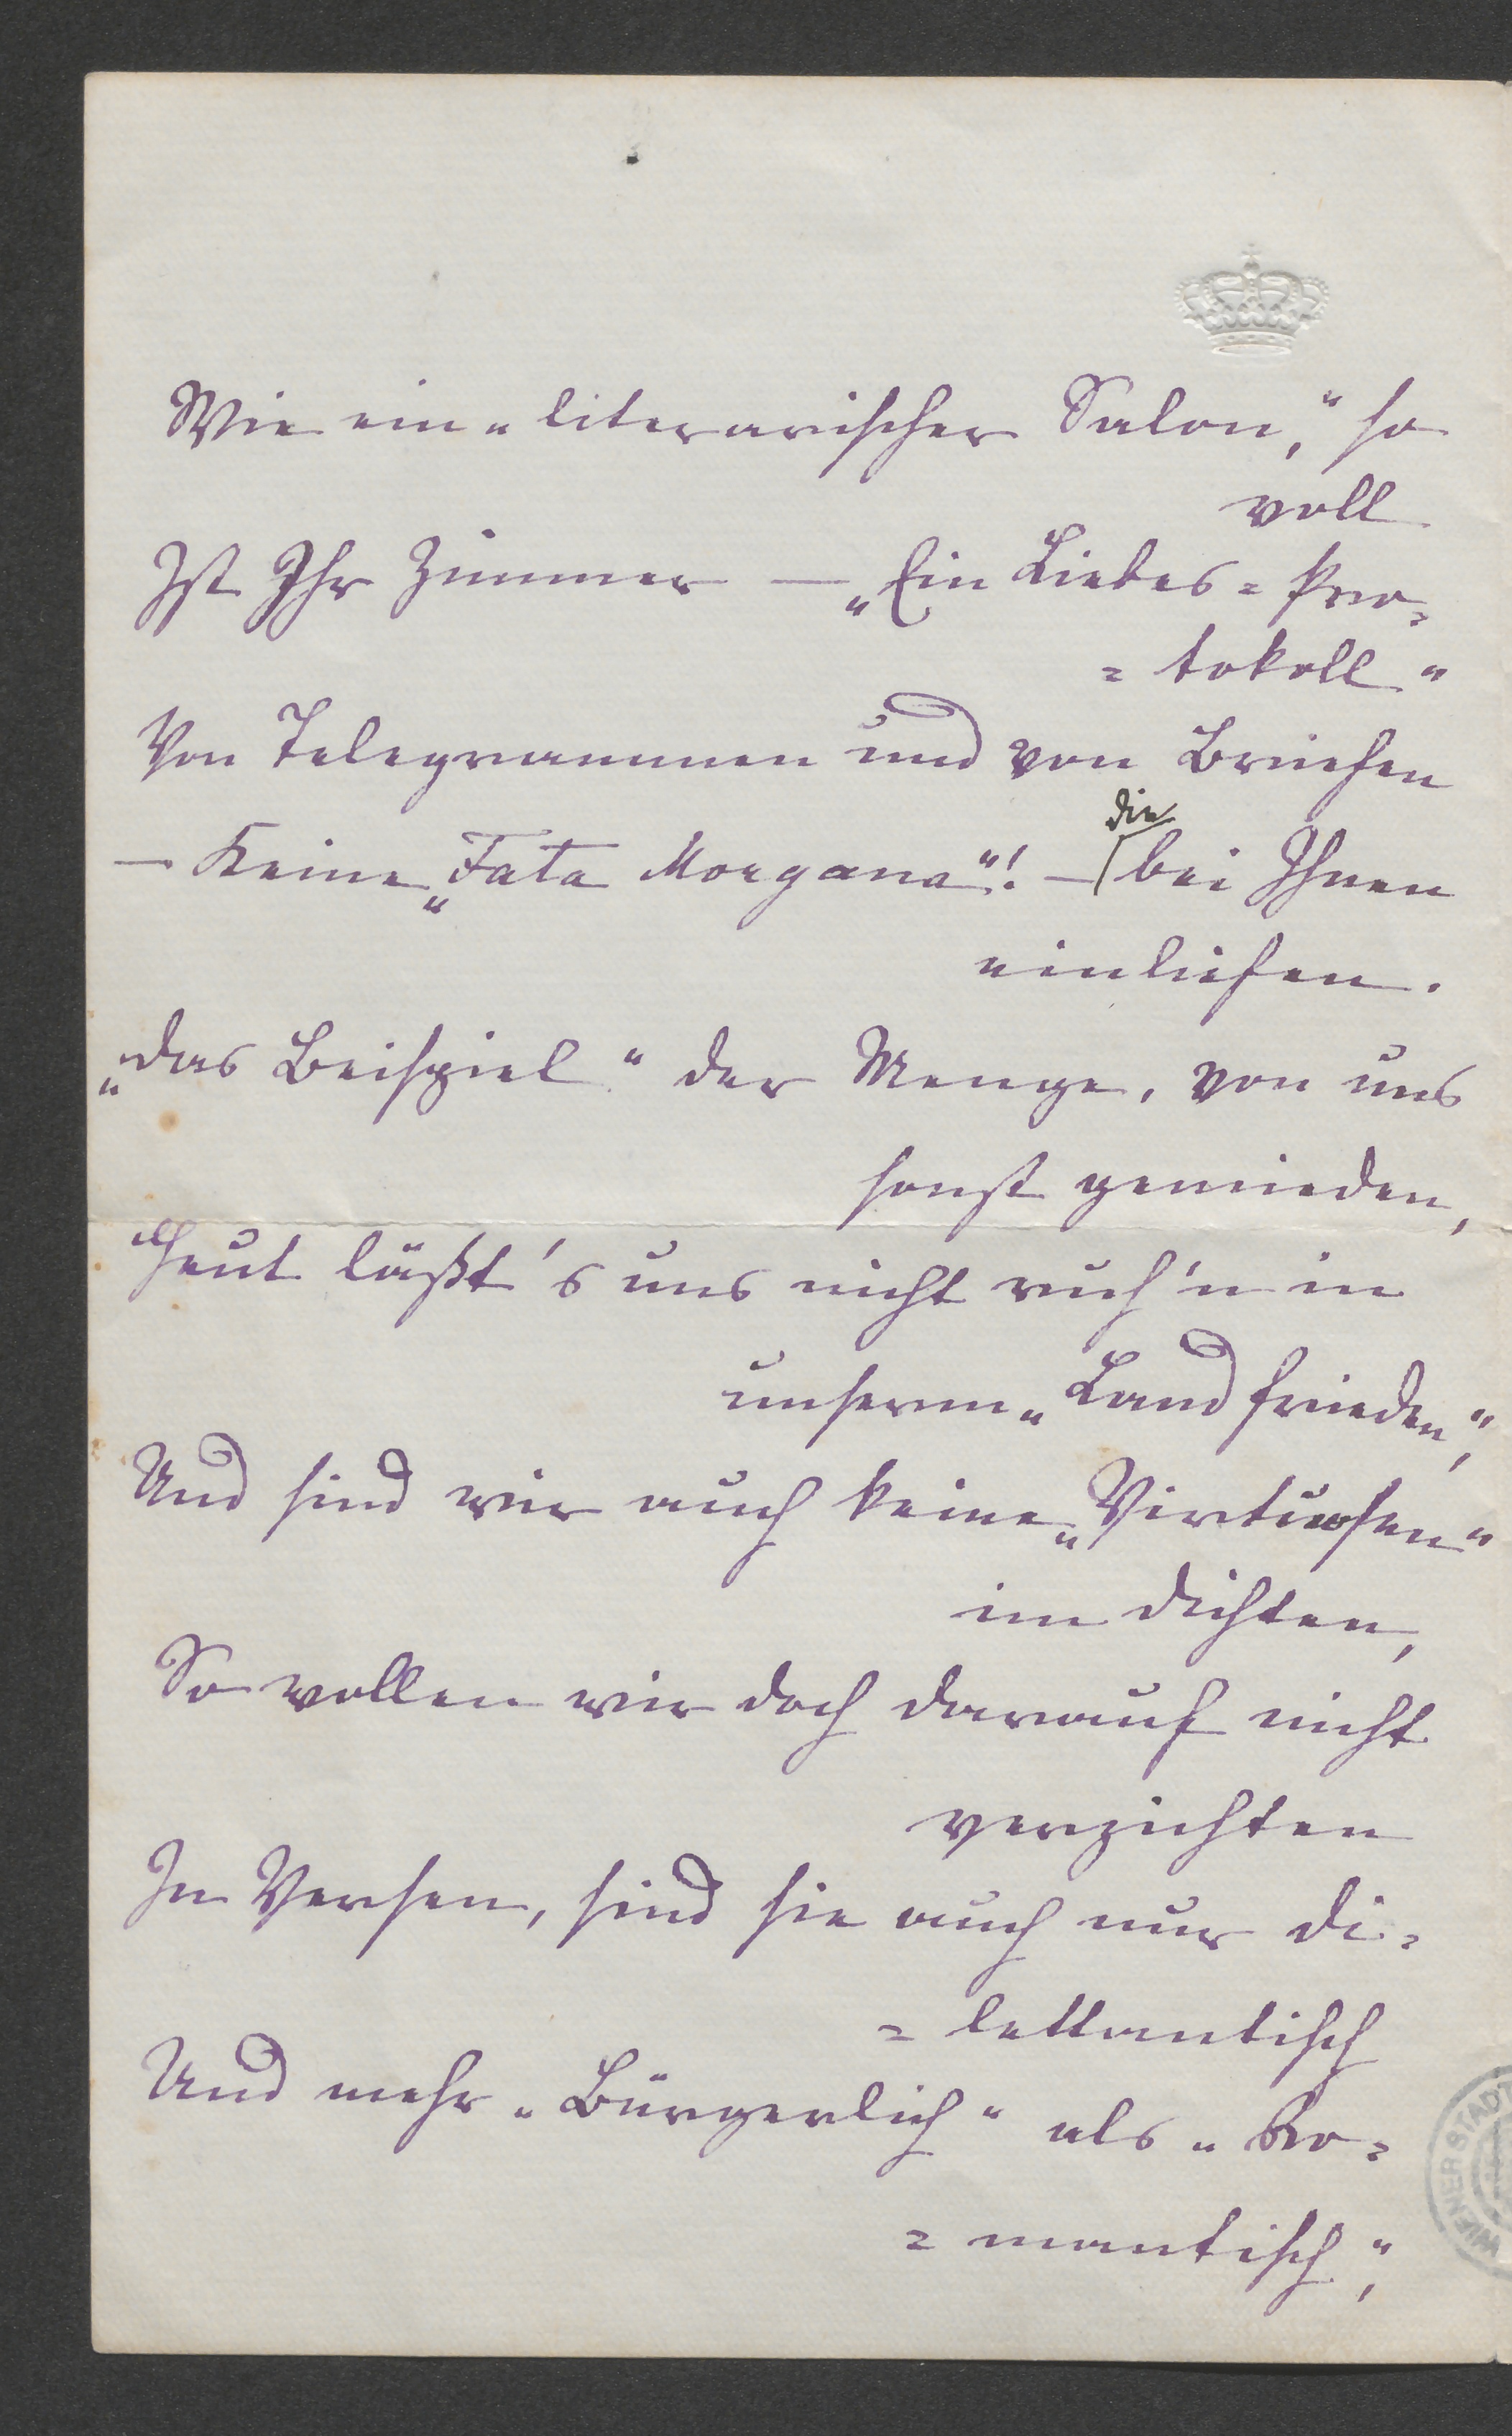 Wie ein „literarischer Salon,“ so
voll
Ist Ihr Zimmer — „Ein Liebes=Pro=
=tokoll“
Von Telegrammen und von Briefen
— Keine „Fata Morgana“! — die bei Ihnen
einliefen.
„Das Beispiel“ der Menge, von uns
sonst gemieden,
Heut läßt's uns nicht ruh'n in
unserm „Landfrieden“,
Und sind wir auch keine „Virtuosen“
im Dichten,
So wollen wir doch darauf nicht
verzichten
In Versen, sind sie auch nur di=
=lettantisch
Und mehr „Bürgerlich“ als „Ro=
=mantisch“,
WIENER STADT